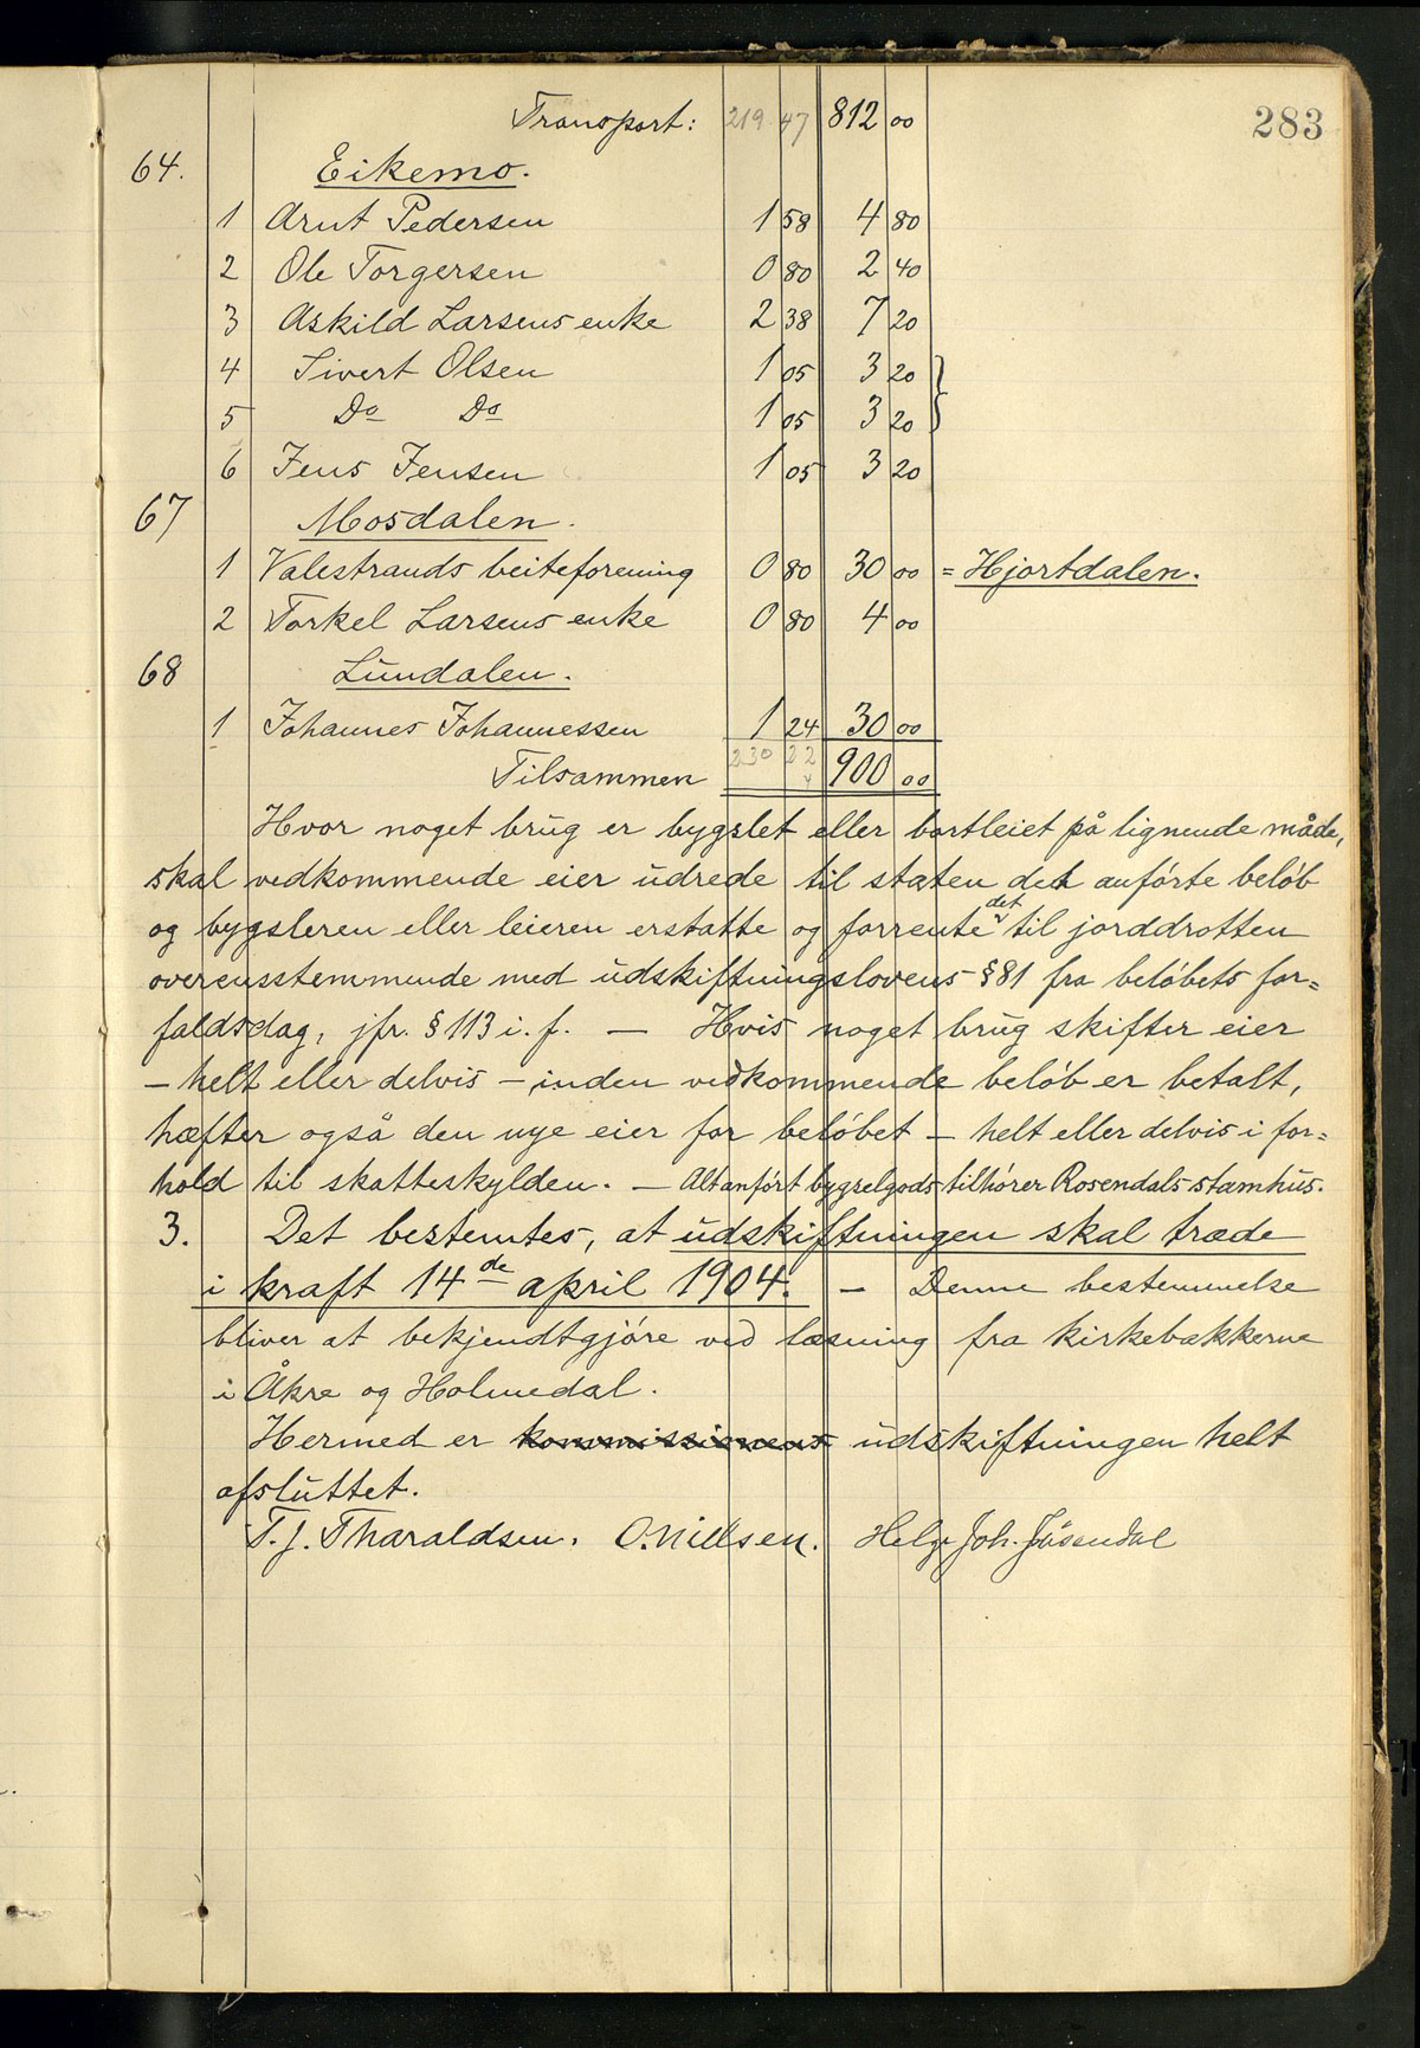 283
Transport: 219 47 812 00
64. Eikemo.
1 Arnt Pedersen 1 58 4 80
2 Ole Torgersen 0 80 2 40
3 Askild Larsens enke 2 38 7 20
4 Sivert Olsen 1 05 3 20 }
5 Do Do 1 05 3 20 }
6 Jens Jensen 1 05 3 20
67 Mosdalen.
1 Valestrands beiteforening 0 80 30 00 = Hjortdalen.
2 Torkel Larsens enke 0 80 4 00
68 Lundalen.
1 Johannes Johannessen 1 24 30 00
Tilsammen 230 22 900 00
Hvor noget brug er bygslet eller bortleiet på lignende måde,
skal vedkommende eier udrede til staten det anførte beløb
og bygsleren eller leieren erstatte og forrente det til jorddrotten
overensstemmende med udskiftningslovens § 81 fra beløbets for=
faldsdag, jfr. § 113 i. f. — Hvis noget brug skifter eier
— helt eller delvis — inden vedkommende beløb er betalt,
hæfter også den nye eier for beløbet — helt eller delvis i for=
hold til skatteskylden. — Alt anført bygselgods tilhører Rosendals stamhus.
3. Det bestemtes, at udskiftningen skal træde
i kraft 14de april 1904. — Denne bestemmelse
bliver at bekjendtgjøre ved læsning fra kirkebakkerne
i Åkre og Holmedal.
Hermed er kommissionens udskiftningen helt
afsluttet.
T. J. Tharaldsen. O. Nillsen. Helge Joh. Jøsendal